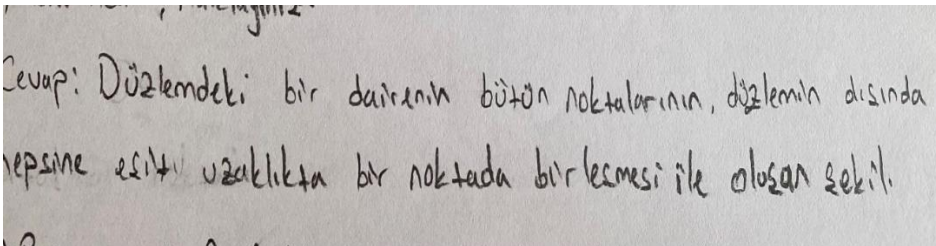 Cevap: Düzlemdeki bir dairenin bütün noktalarının, düzlemin dışında
hepsine eşit uzaklıkta bir noktada birleşmesi ile oluşan şekil.